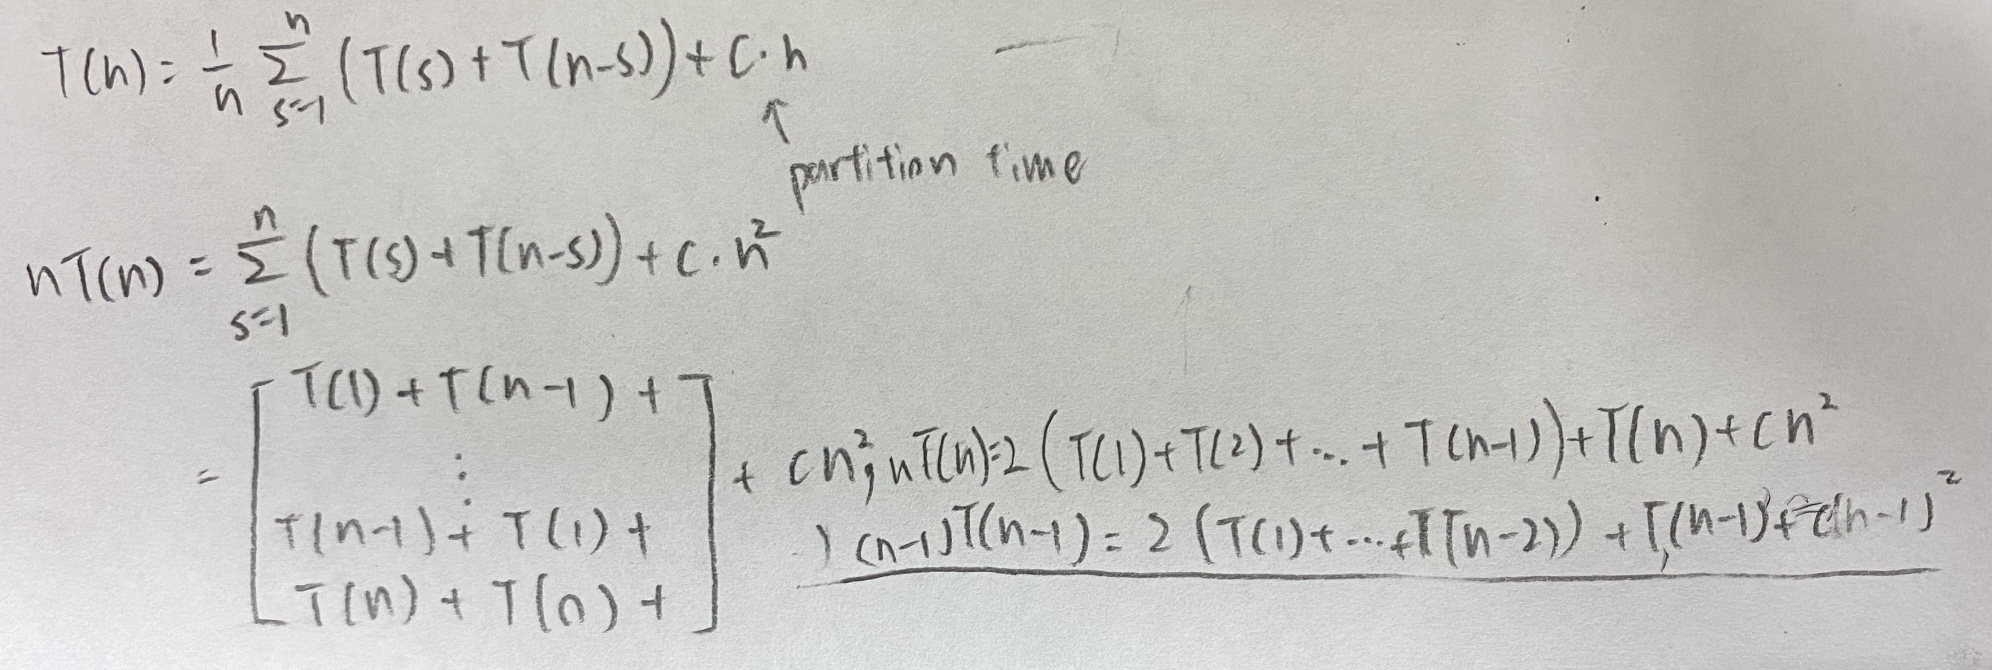 T(n) = 1/n ∑_{s=1}^{n} (T(s) + T(n-s)) + C·n
↑
partition time
nT(n) = ∑_{s=1}^{n} (T(s) + T(n-s)) + c·n²
= [ T(1) + T(n-1) +
⋮
T(n-1) + T(1) +
T(n) + T(0) + ] + cn², nT(n) = 2(T(1) + T(2) + ... + T(n-1)) + T(n) + cn²
) (n-1)T(n-1) = 2(T(1) + ... + T(n-2)) + T(n-1) + c(n-1)²